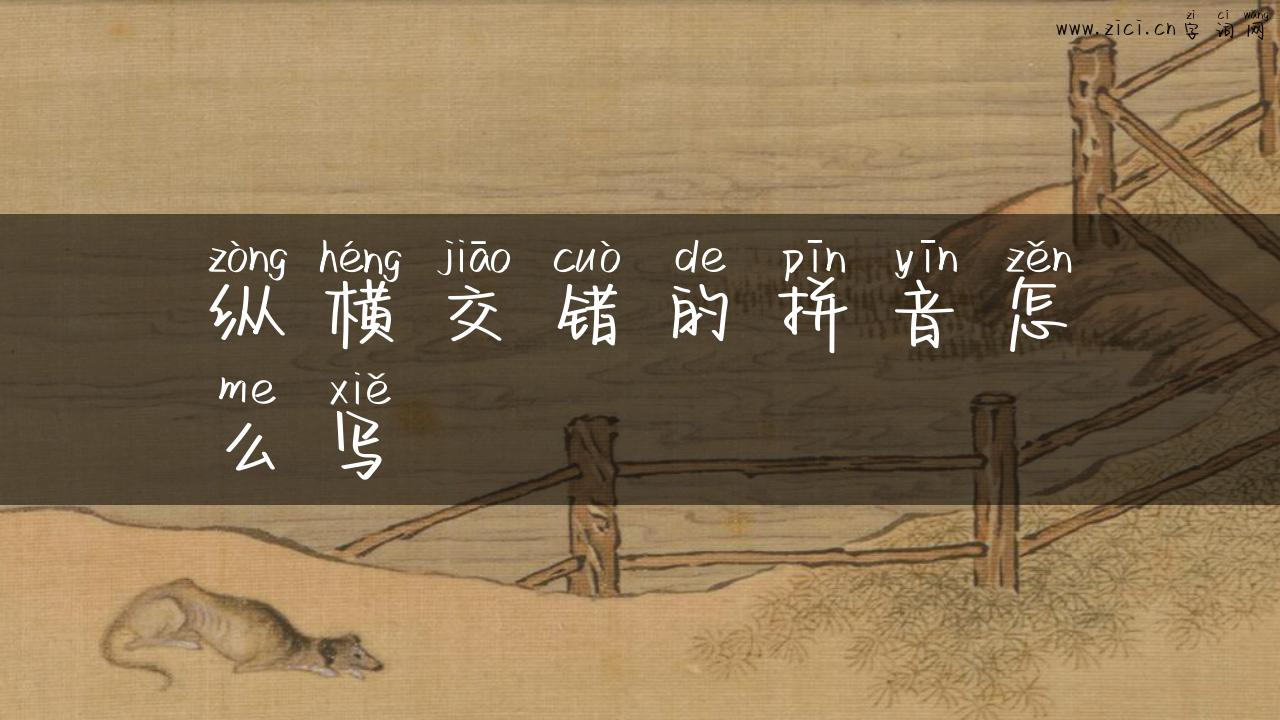 zi ci wang
www.zici.cn 字词网
zòng héng jiāo cuò de pīn yīn zěn
纵横交错的拼音怎
me xiě
么写